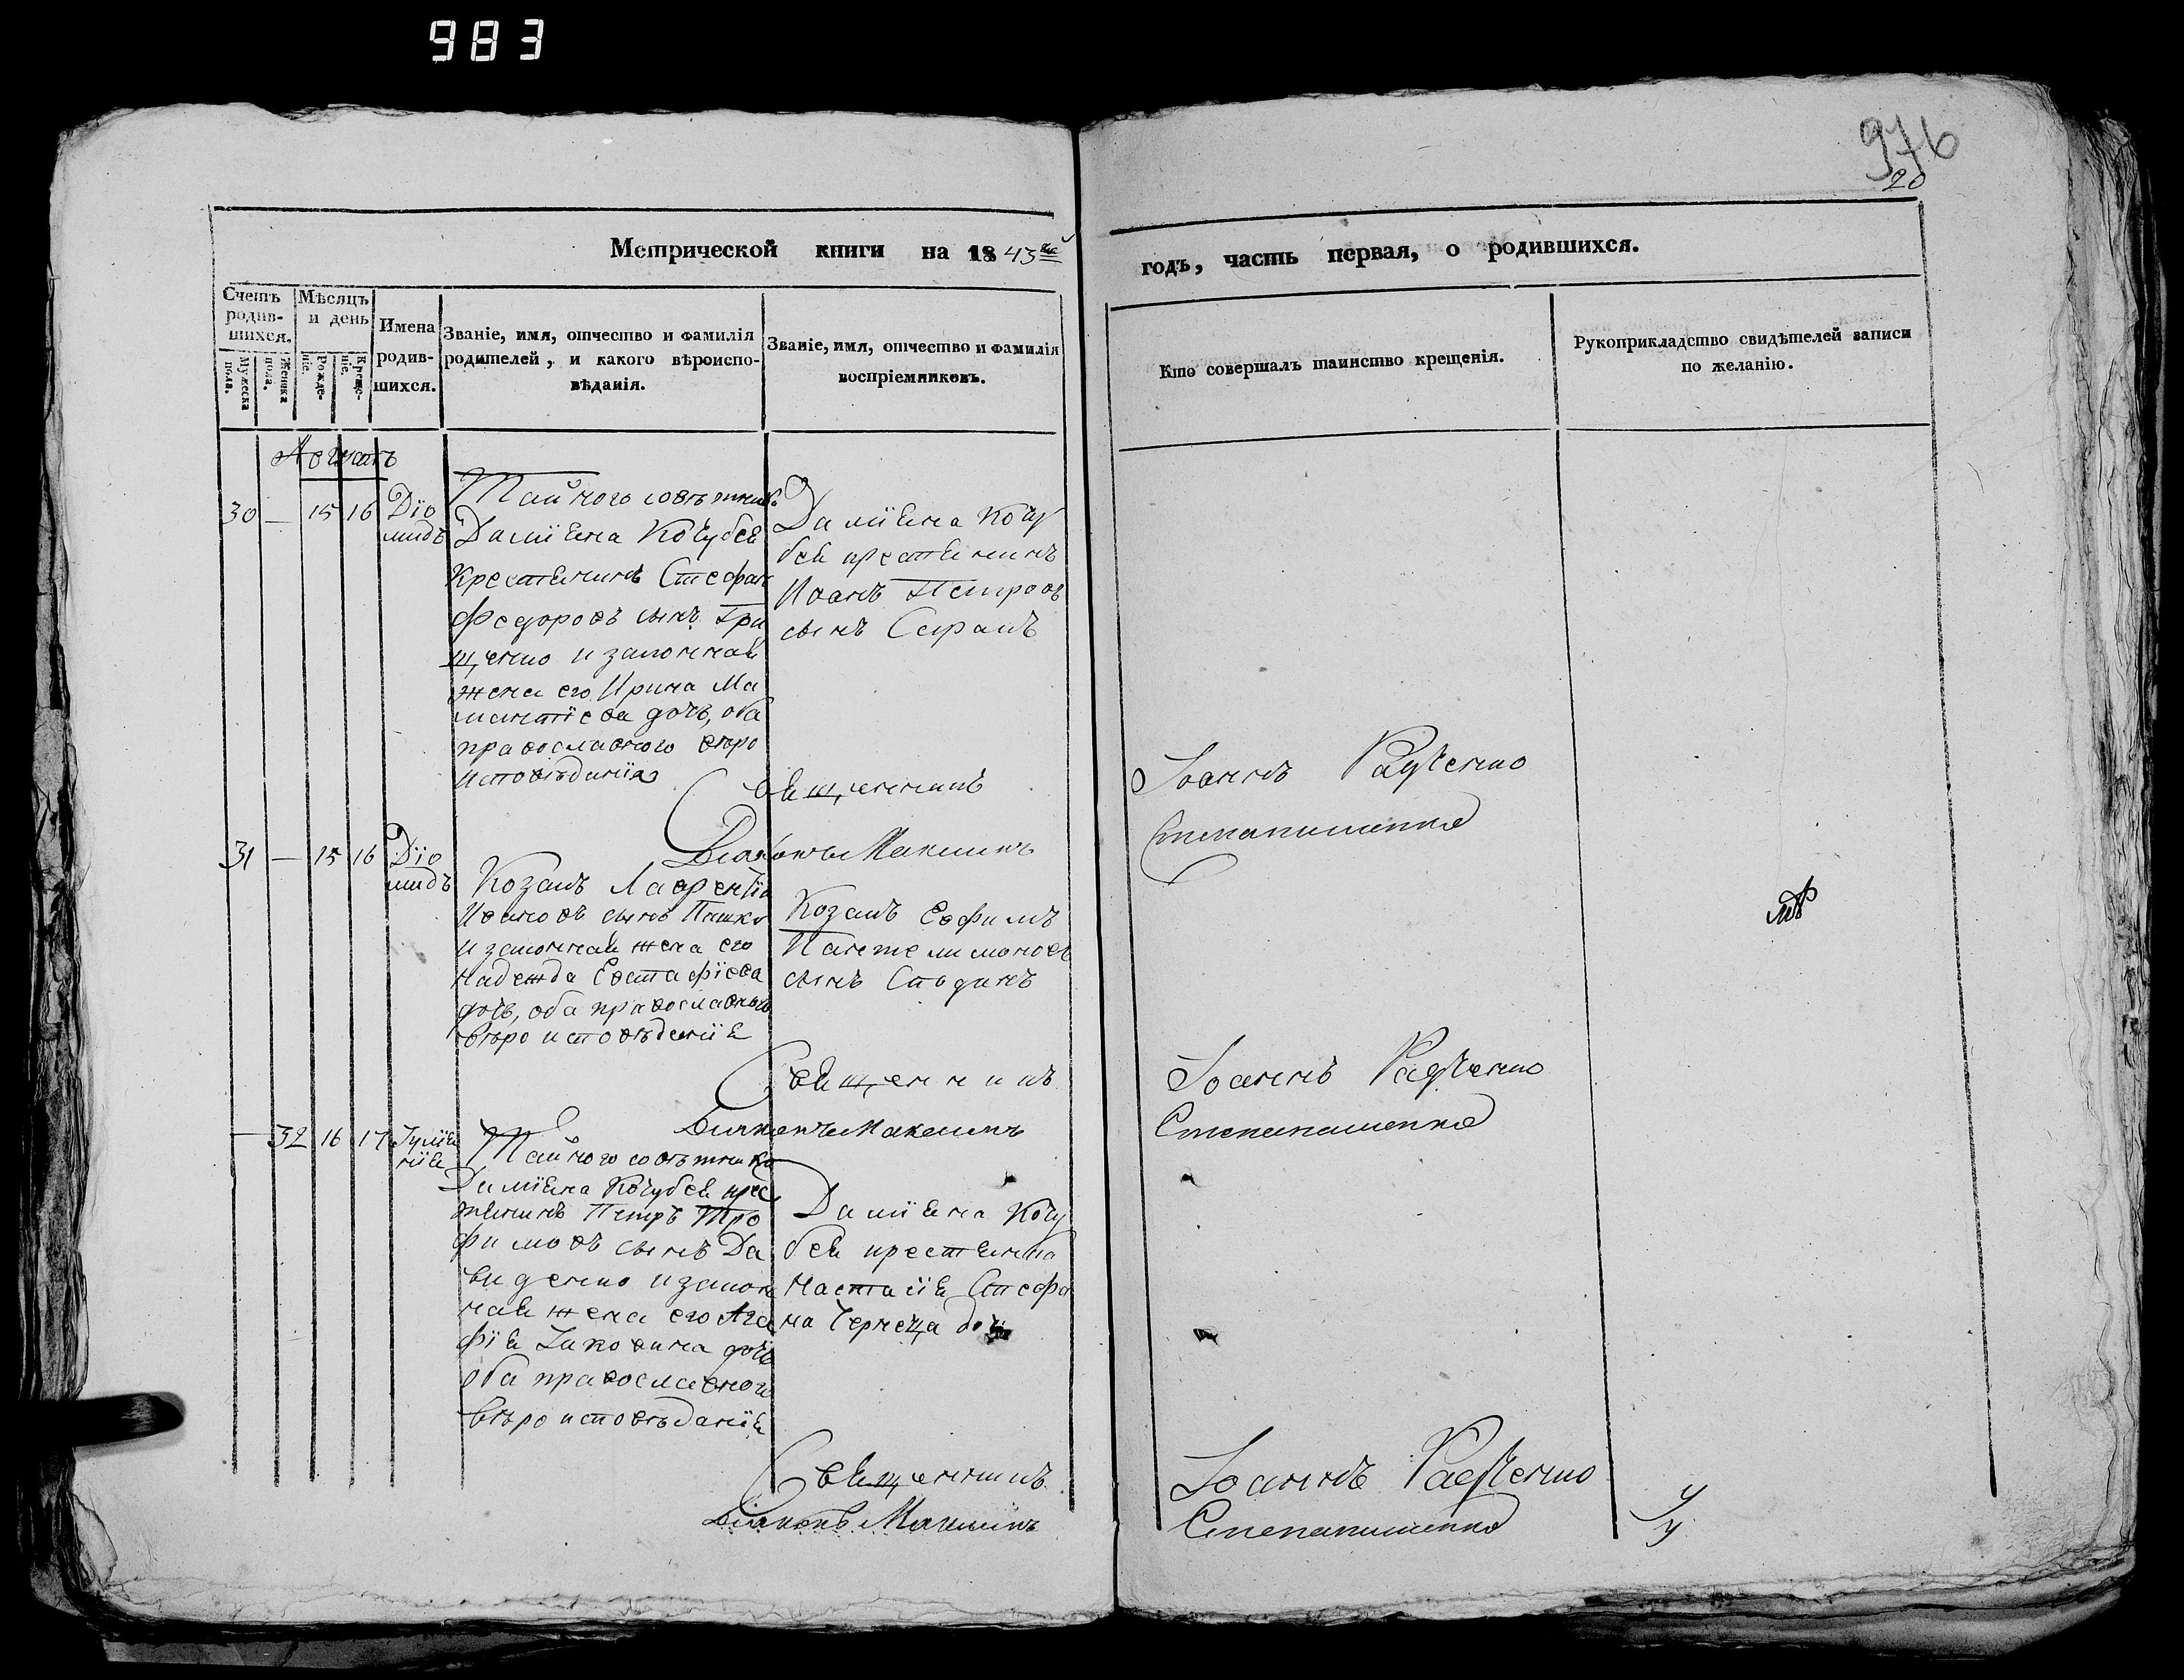 983
976
20
Метрической книги на 1843й
годъ, часть первая, о родившихся.
Счетъ родив-шихся.
Мужеска пола.
Женска пола.
Мѣсяцъ и день
Рожде-ніе.
Креще-ніе.
Имена родив-шихся.
Званіе, имя, отчество и фамилія родителей, и какого вѣроиспо-вѣданія.
Званіе, имя, отчество и фамилія воспріемниковъ.
Кто совершалъ таинство крещенія.
Рукоприкладство свидѣтелей записи по желанію.
Августъ
30 — 15 16 Діо
мидъ
Тайного совѣтника
Даміяна Кочубея
Крестянинъ Стефанъ
Федоровъ сынъ Гри
щенко и законная
жена его Ирина Ма
мантіева дочь, оба
православного вѣро
исповѣданія
Даміяна Кочу
бея крестянинъ
Иоанъ Петровъ
сынъ
Священникъ
Діаконъ Максимъ
Іоаннъ Радченко
Степанишенко
31 — 15 16 Діо
мидъ
Козакъ Лаврентій
Ивановъ сынъ Пашко
и законная жена его
Надежда Евстафіева
дочь, оба православного
вѣроисповѣданія
Козакъ Евфимъ
Пантелимоновъ
сынъ
Священникъ
Діаконъ Максимъ
Іоаннъ Радченко
Степанишенко
— 32 16 17 Іуліа
нія
Тайного совѣтника
Даміяна Кочубея крес
тянинъ Петръ Тро
фимовъ сынъ Да
виденко и закон
ная жена его Ага
фія Іаковина дочь
оба православного
вѣроисповѣданія
Даміяна Кочу
бея крестянка
Настасія Стефа
на Чернеца дочь
Священникъ
Діаконъ Максимъ
Іоаннъ Радченко
Степанишенко